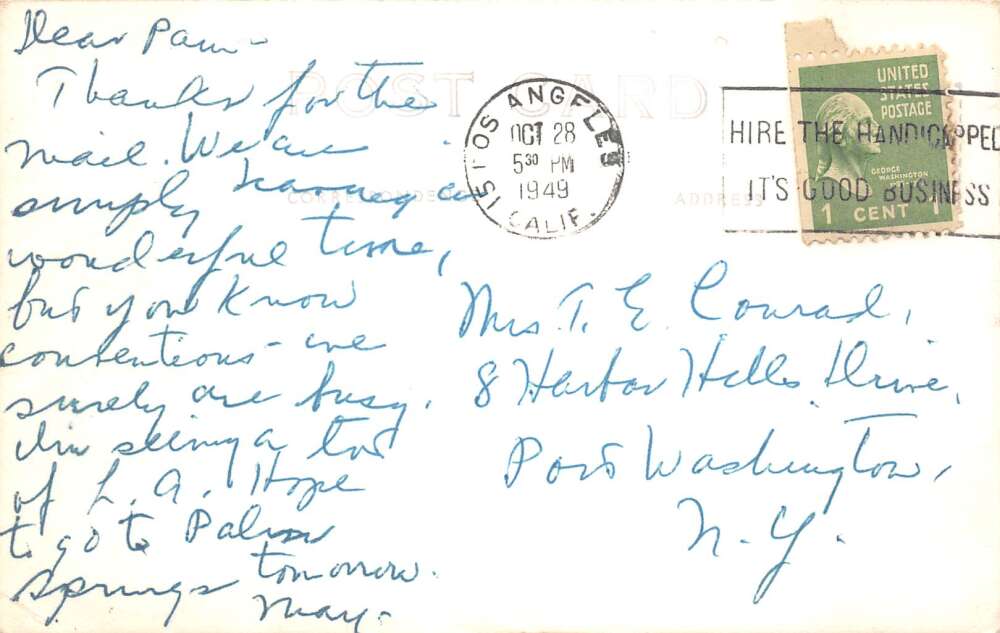 Dear Pam-
Thanks for the
mail. We are
simply having a
wonderful time,
but you know
conventions - we
surely are busy.
I'm seeing a lot
of L.A. Hope
to go to Palm
Springs tomorrow.
May-
POST CARD
CORRESPONDENCE
ADDRESS
LOS ANGELES
OCT 28
5 30 PM
1949
CALIF.
15
HIRE THE HANDICAPPED
IT'S GOOD BUSINESS
UNITED
STATES
POSTAGE
GEORGE
WASHINGTON
1 CENT 1
Mrs. T. E. Conrad,
8 Harbor Hills Drive,
Port Washington,
N.Y.